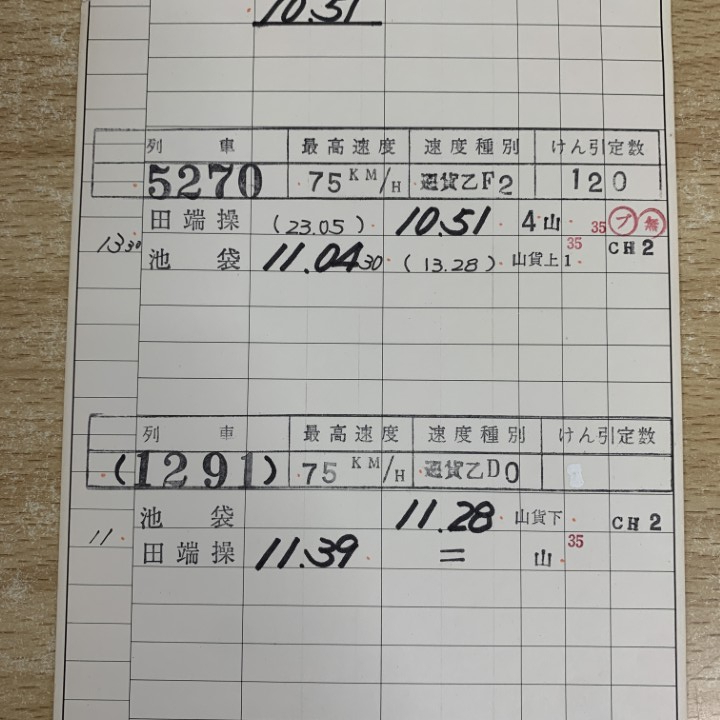 10.51
列車 最高速度 速度種別 けん引定数
5270 75 KM/H 通貨乙F2 120
田端操 (23.05) 10.51 4山 35 プ 無
13 30 池袋 11.04 30 (13.28) 山貨上1 35 CH2
列車 最高速度 速度種別 けん引定数
(1291) 75 KM/H 通貨乙D0
池袋 11.28 山貨下 CH2
11 田端操 11.39 = 山 35